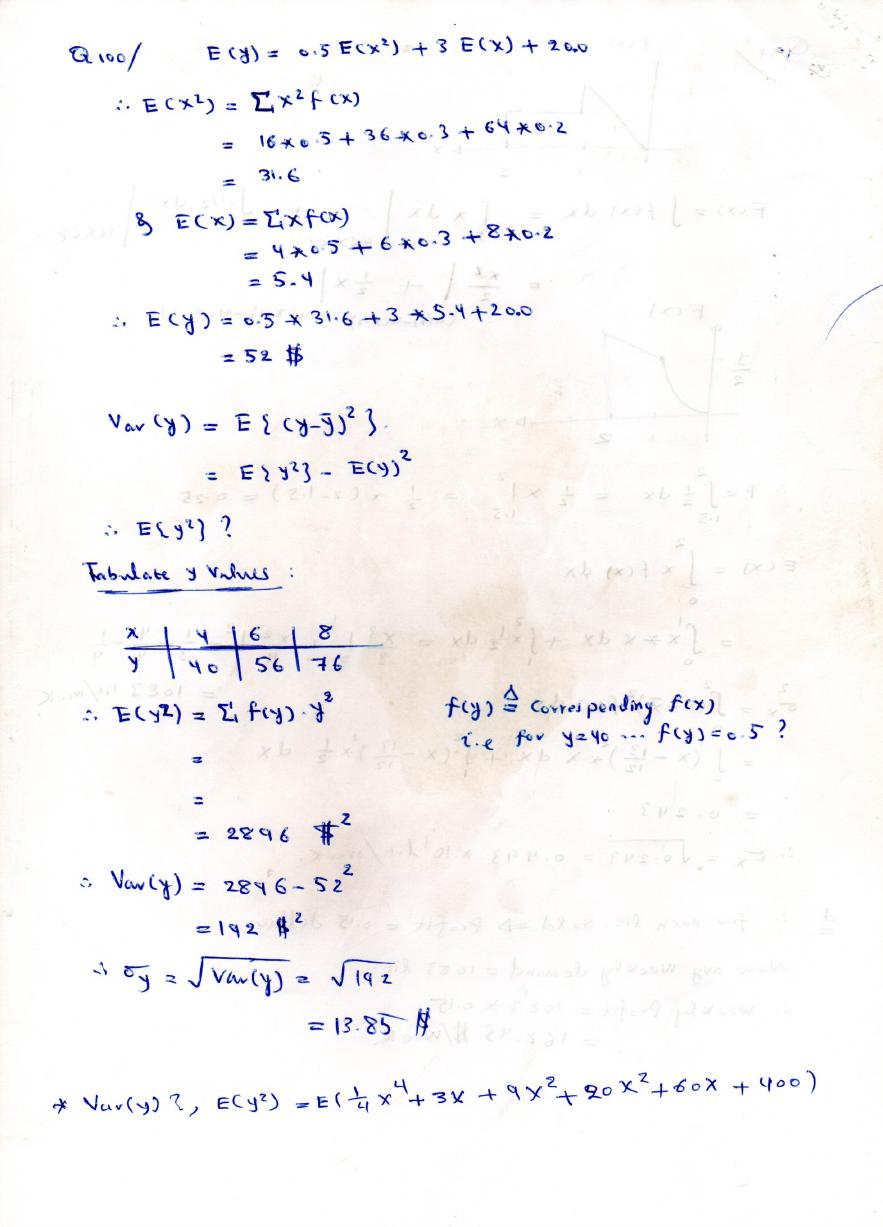 Q100/ E(y) = 0.5 E(x²) + 3 E(x) + 20.0
∴ E(x²) = Σ x² f(x)
= 16*0.5 + 36*0.3 + 64*0.2
= 31.6
& E(x) = Σ x f(x)
= 4*0.5 + 6*0.3 + 8*0.2
= 5.4
∴ E(y) = 0.5 * 31.6 + 3 * 5.4 + 20.0
= 52 $
Var(y) = E{(y-ȳ)²}.
= E{y²} - E(y)²
∴ E{y²} ?
Tabulate y Values :
x | 4 | 6 | 8
y | 40 | 56 | 76
∴ E(y²) = Σ f(y).y² f(y) ≜ corresponding f(x)
= i.e for y=40 ... f(y)=0.5 ?
=
= 2896 $²
∴ Var(y) = 2896 - 52²
= 192 $²
∴ σy = √Var(y) = √192
= 13.85 $
* Var(y) ?, E(y²) = E(¼ x⁴ + 3x + 9x² + 20x² + 60x + 400)